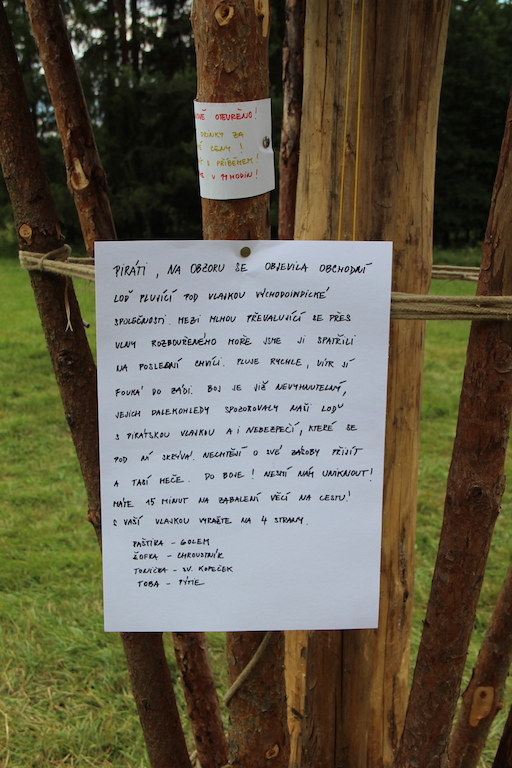 OVĚ OTEVŘENO!
DRINKY ZA
CENY!
S PŘÍBĚHEM!
V 19 HODIN!
PIRÁTI, NA OBZORU SE OBJEVILA OBCHODNÍ
LOĎ PLUVÍCÍ POD VLAJKOU VÝCHODOINDICKÉ
SPOLEČNOSTI. MEZI MLHOU PŘEVALUJÍCÍ SE PŘES
VLNY ROZBOUŘENÉHO MOŘE JSME JI SPATŘILI
NA POSLEDNÍ CHVÍLI. PLUJE RYCHLE, VÍTR JÍ
FOUKÁ DO ZÁDI. BOJ JE JIŽ NEVYHNUTELNÝ,
JEJICH DALEKOHLEDY SPOZOROVALY NAŠI LOĎ
S PIRÁTSKOU VLAJKOU A I NEBEZPEČÍ, KTERÉ SE
POD NÍ SKRÝVÁ! NECHTĚJÍ O SVÉ ZÁSOBY PŘIJÍT
A TASÍ MEČE. DO BOJE! NESMÍ NÁM UNIKNOUT!
MÁTE 15 MINUT NA ZABALENÍ VĚCÍ NA CESTU!
S VAŠÍ VLAJKOU VYRAŽTE NA 4 STRANY.
PAŠTIKA - GOLEM
ŽOFKA - CHROUSTNÍK
TONIČKA - SV. KOPEČEK
TOBA - PÝTIE